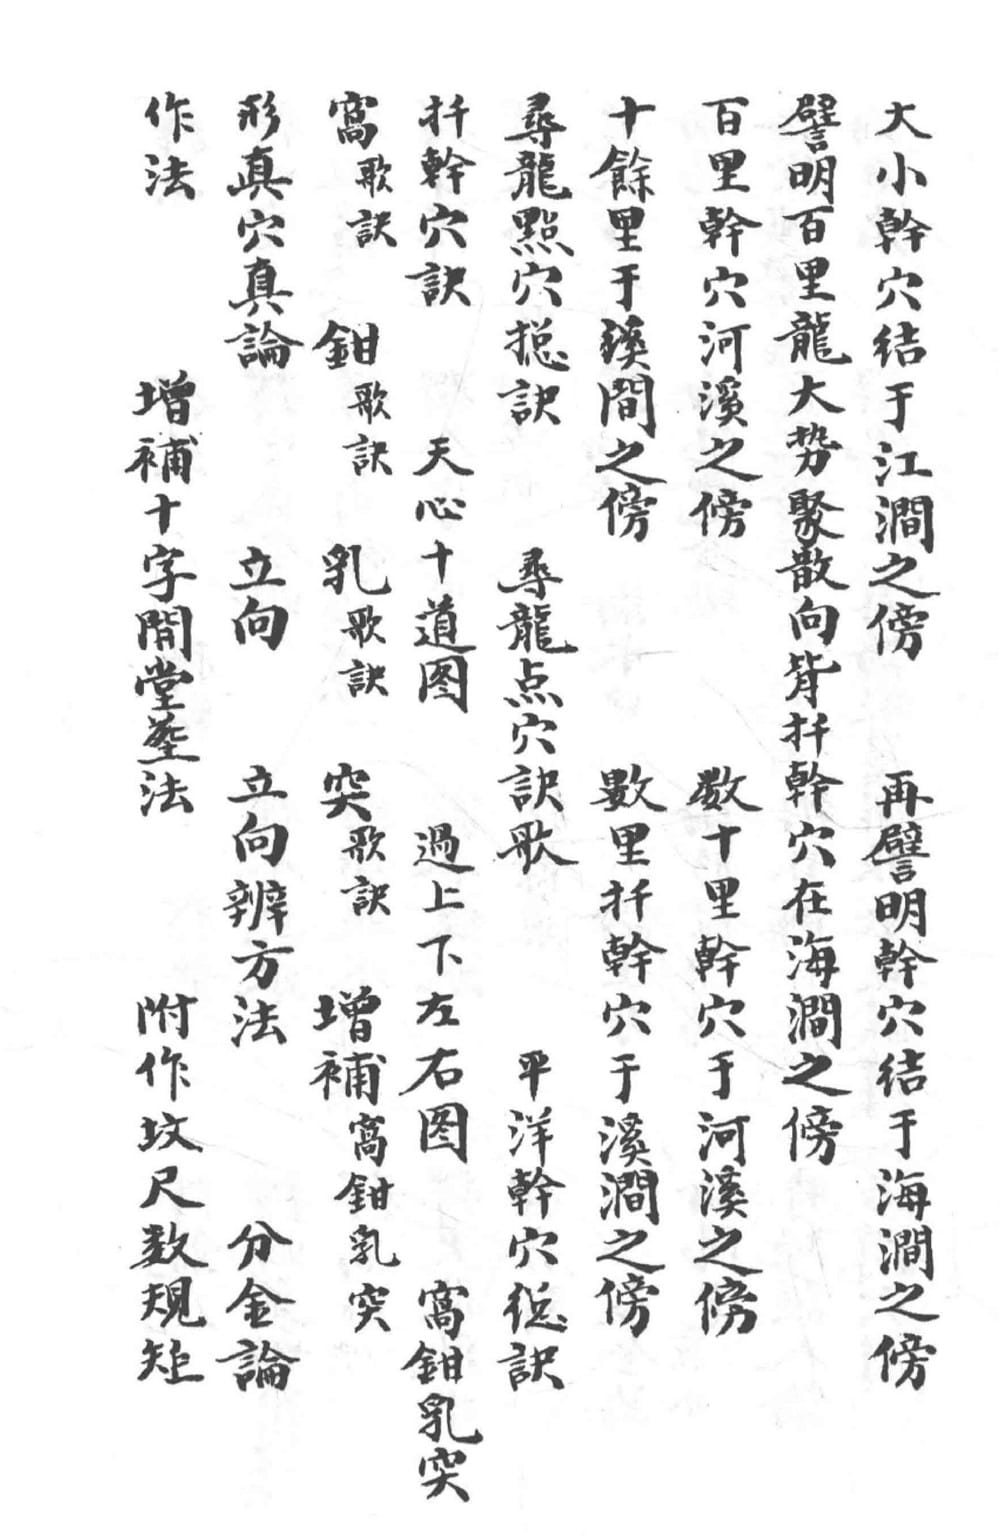 大小幹穴結于江澗之傍　再譬明幹穴結于海澗之傍
譬明百里龍大势聚散向背扦幹穴在海澗之傍
百里幹穴河溪之傍　数十里幹穴于河溪之傍
十餘里于溪間之傍　數里扦幹穴于溪澗之傍
尋龍點穴摠訣　尋龍点穴訣歌　平洋幹穴総訣
扦幹穴訣　天心十道图　過上下左右图　窩鉗乳突
窩歌訣　鉗歌訣　乳歌訣　突歌訣　增補窩鉗乳突
形真穴真論　立向　立向辨方法　分金論
作法　增補十字開堂塟法　附作坟尺数規矩